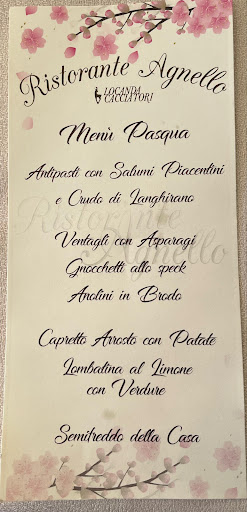 Ristorante Agnello
LOCANDA
CACCIATORI
Menù Pasqua
Antipasti con Salumi Piacentini
e Crudo di Langhirano
Ristorante
Agnello
Ventagli con Asparagi
Gnocchetti allo speck
Anolini in Brodo
Capretto Arrosto con Patate
Lombatina al Limone
con Verdure
Semifreddo della Casa